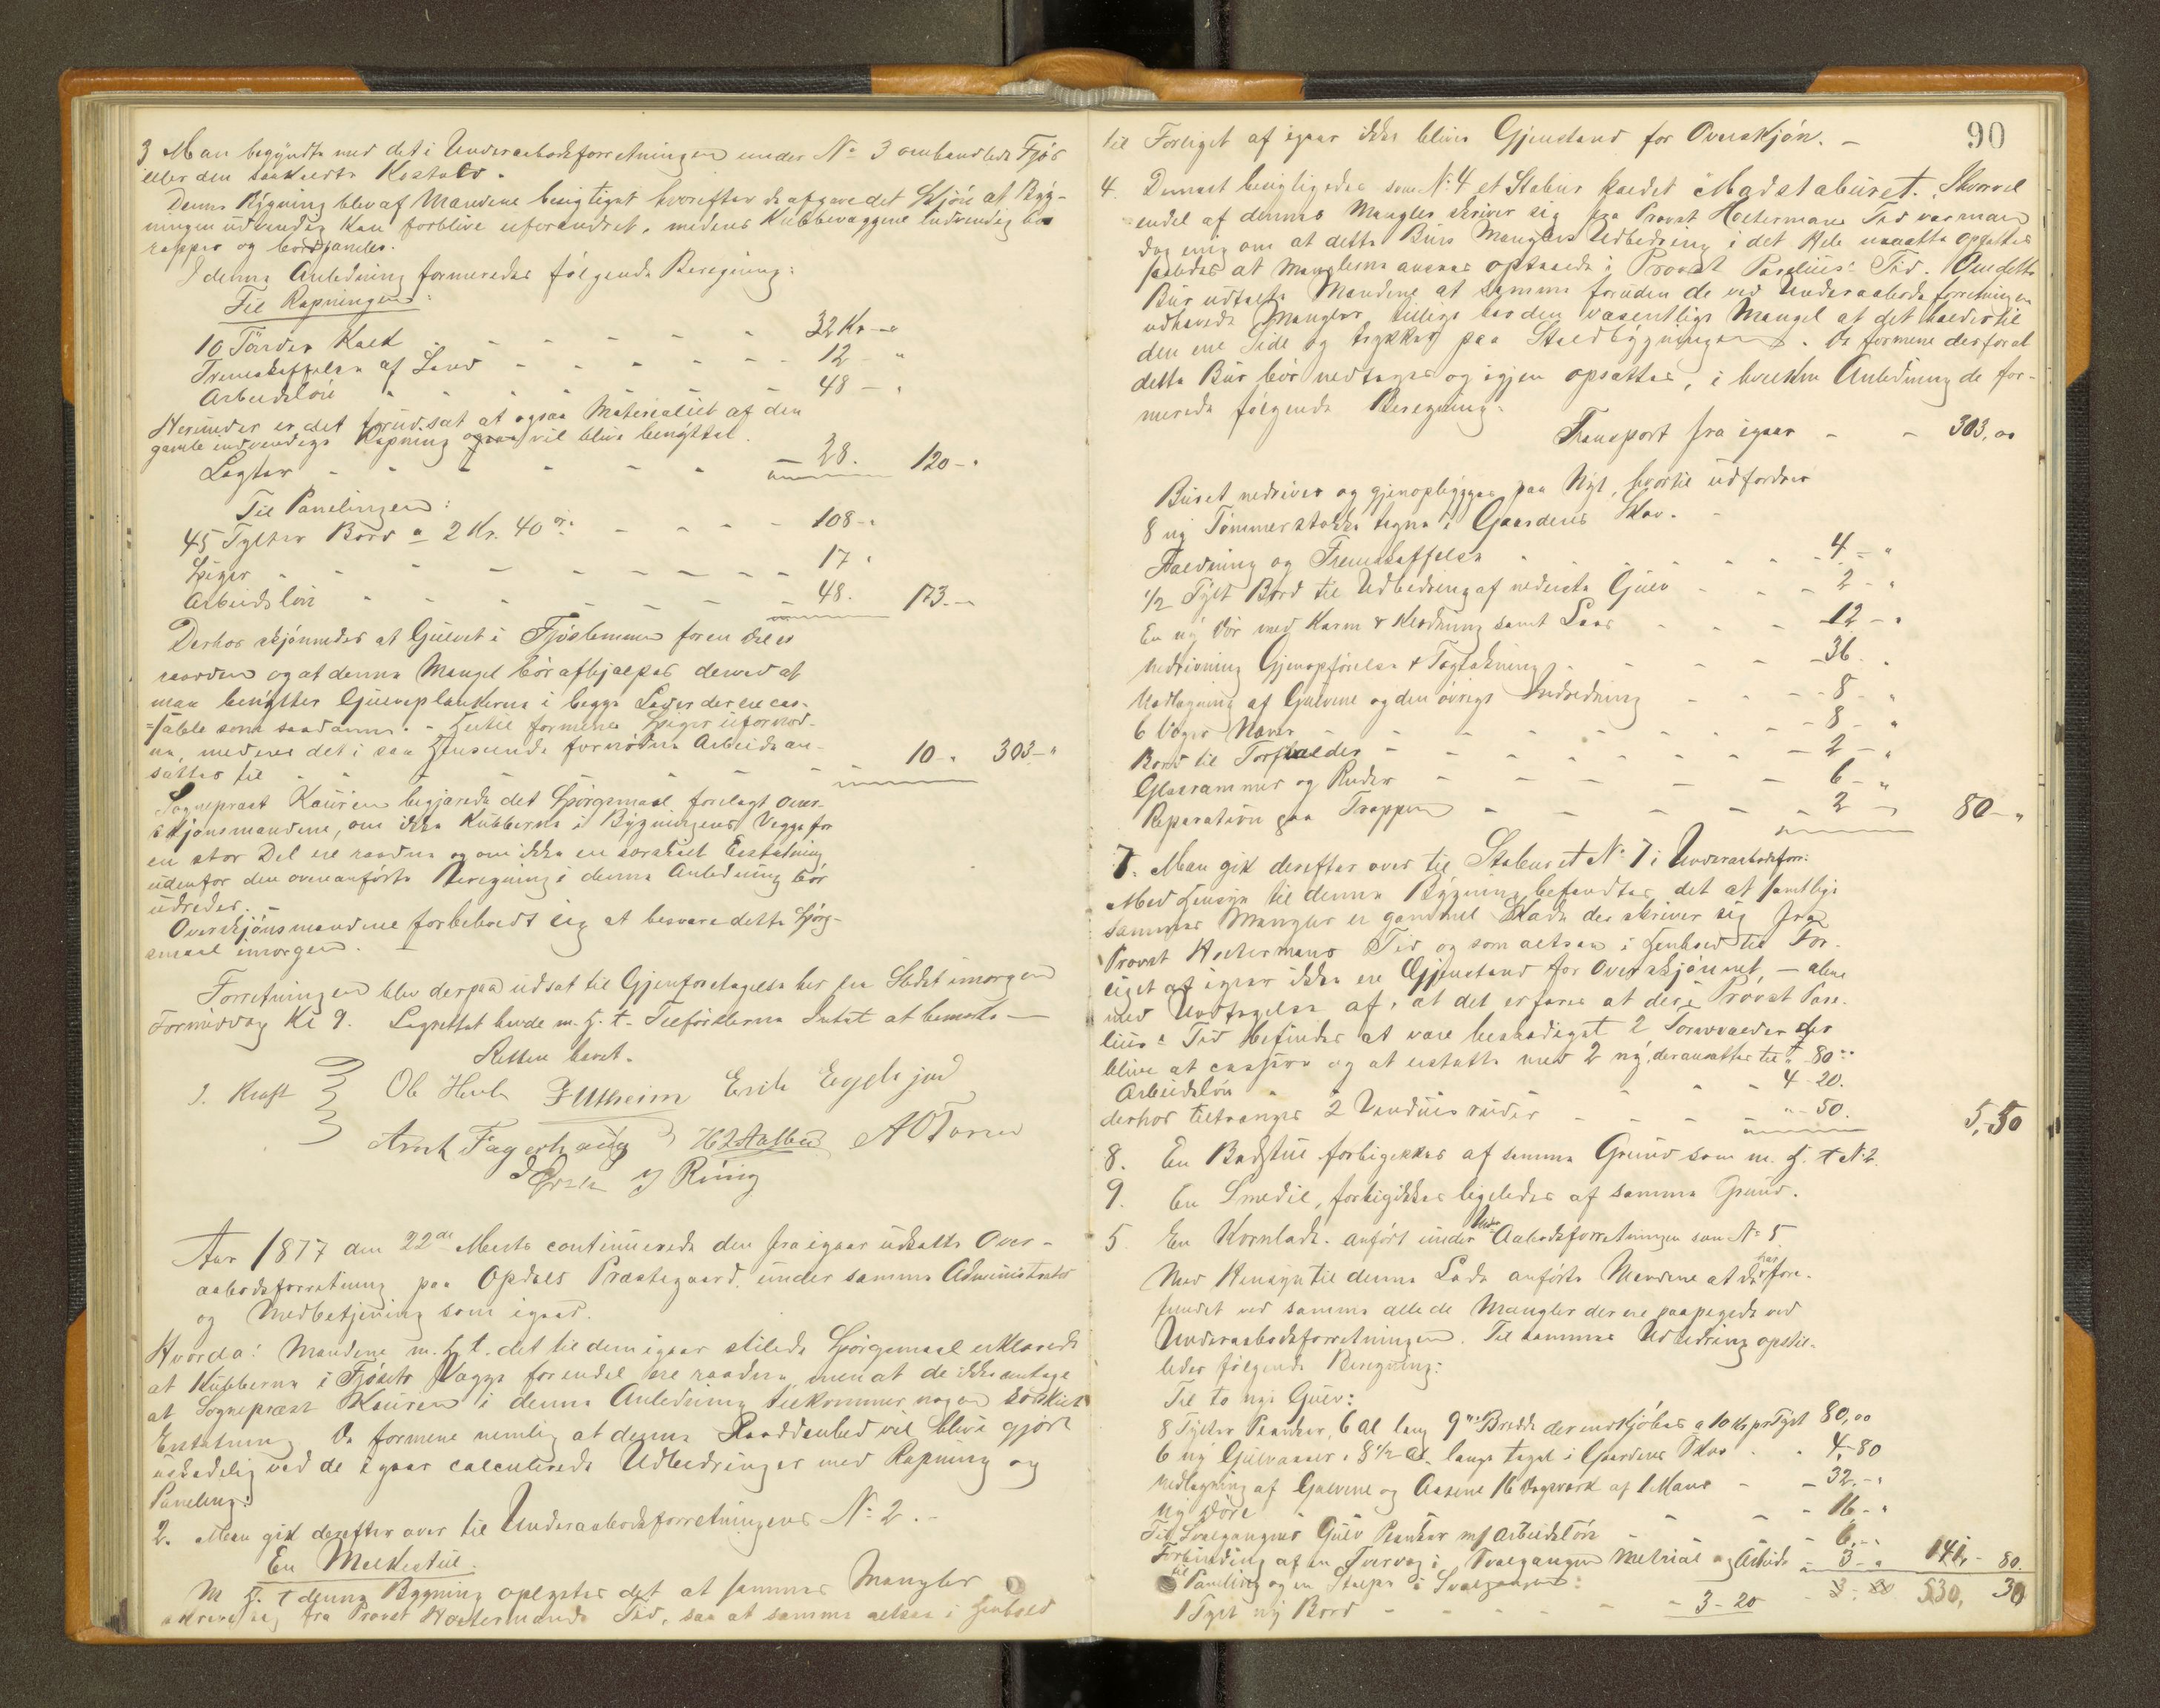 3 Man begyndte med det i Underaabodsforretningen under No 3 omhandlede Fjøs
eller den saakaldte Kostald.
Denne Bygning blev af Mændene besigtiget hvorefter de afgave det Skjøn at Byg-
ningen udvendig kan forblive uforandret, medens Kubbevæggene indvendig bør
rappes og bordpanles.
I denne Anledning formeredes følgende Beregning:
Til Rapningen:
10 Tønder Kalk - - - - - 32 Kr - "
Fremskaffelse af Sand - - - - - 12 - "
Arbeidsløn - - - - - 48 - "
Herunder er det forudsat at ogsaa Materialiet af den
gamle indvendige Rapning vil blive benyttet.
Legter - - - - - - 28. 120 - "
Til Panelingen:
45 Tylter Bord a 2 Kr. 40 ør. - - - - 108 - "
Spiger - - - - - - - 17 "
Arbeidsløn - - - - - - 48. 173. -
Derhos skjønnedes at Gulvet i Fjøslemmen for en Del er
raadden og at denne Mangel bør afhjælpes derved at
man benytter Gulvplankerne i begge Lader der ere cas-
=sable som saadanne. - Hertil formenes Spiger ufornød-
en, medens det i saa Henseende fornødne Arbeide an-
sættes til - - - - - 10 - " 303 - "
Sognepræst Kaurin begjærede det Spørgsmaal forelagt Over-
skjønsmændene, om ikke Kubberne i Bygningens Vægge for
en stor Del ere raadne og om ikke en særskilt Erstatning
udenfor den ovenanførte Beregning i denne Anledning bør
udredes. -
Overskjønsmændene forbeholdt sig at besvare dette Spørg-
smaal imorgen. -
Forretningen blev derpaa udsat til Gjenforetagelse her paa Stedet imorgen
Formiddag Kl 9. Lagrettet havde m. H. t. Tilførslerne Intet at bemærke -
Retten hævet.
J. Kraft Ole Hevle Erik Eggehjod
Arnt Fagerhaug AO Toren
Aar 1877 den 22de Marts continuerede den fra igaar udsatte Over-
aabodsforretning paa Opdals Præstegaard under samme Administrator
og Medbetjening som igaar.
Hvorda: Mændene m. H. t. det til dem igaar stilede Spørgsmaal erklærede
at Kubberne i Fjøsets Vægge for endel ere raadne, men at de ikke antage
at Sogneprest Kaurin i denne Anledning tilkommer nogen særskilt
Erstatning De formene nemlig at denne Raaddenhed vil blive gjort
uskadelig ved de igaar calculerede Udbedringer med Rapning og
Paneling.
2. Man gik derefter over til Underaabodsforretningens No 2. -
En Melkestue.
M. H. t denne Bygning oplystes det at sammes Mangler
skrive sig fra Provst Hostermands Tid, saa at samme altsaa i Henhold
90
til Forliget af igaar ikke bliver Gjenstand for Overskjøn. -
4. Dernæst besigtigedes som No 4 et Stabur kaldet Madstaburet. Skjønt
endel af dennes Mangler skriver sig fra Provst Hostermans Tid var man
dog enig om at dette Burs Manglers Udbedring i det Hele maatte opfattes
saaledes at Manglerne ansees opstaaede i Provst Parelius's Tid. Om dette
Bur udtalte Mændene at samme foruden de ved Underaabodsforretningen
udhævede Mangler tillige har den væsentlige Mangel at det helder til
den ene Side og trykker paa Staldbygningen. De formene derfor at
dette Bur bør nedtages og igjen opsættes, i hvilken Anledning de for-
merede følgende Beregning:
Transport fra igaar - - 303,00
Buret nedrives og gjenopbygges paa Nyt, hvortil udfordres
8 ny Tømmerstokke tagne i Gaardens Skov. -
Fældning og Fremskaffelse - - - - 4 - "
1/2 Tylt Bord til Udbedring af nederste Gulv - - - 2 - "
En ny Dør med Karm & Klædning samt Laas - - - 12 - "
Nedrivning Gjenopførelse & Tagtækning - - - - 36. "
Nedlægning af Gulvene og den øvrige Indredning - - - 8 - "
6 Voger Næver - - - - - - 8 - "
Bord til Torvhalder - - - - - 2 - "
Glasrammer og Ruder - - - - - 6 - "
Reparation paa Trappen - - - - - 2 - 80 - "
7. Man gik derefter over til Staburet No 7 i Underaabodsforr:
Med Hensyn til denne Bygning befandtes det at samtlige
sammes Mangler er gammel Skade der skriver sig fra
Provst Hostermans Tid og som altsaa i Henhold til For-
liget af igaar ikke ere Gjenstand for Overskjønnet, - alene
med Undtagelse af, at det erfares at der i Provst Pare-
lius's Tid befindes at være beskadiget 2 Torvvolder der
blive at cassere og at erstatte med 2 ny, der ansættes til " 80 "
Arbeidsløn - - - 4 - 20.
derhos tiltrænges 2 Vinduesruder - - - " - 50. 5,50
8. En Badstue forbigikkes af samme Grund som m. H. t No 2.
9. En Smedie, forbigikkes ligeledes af samme Grund.
5 En Kornlade. anført under Under Aabodsforretningen som No 5
Med Hensyn til denne Lade anførte Mændene at de har fore-
fundet ved samme alle de Mangler der ere paapegede ved
Underaabodsforretningen. Til sammes Udbedring opstil-
ledes følgende Beregning:
Til to nye Gulv:
8 Tylter Planker, 6 Al lang 9" Bredde der indkjøbes a 10 Kr pr Tylt 80,00
6 ny Gulvaaser, 8 1/2 Al. lange taget i Gaardens Skov - - 4,80
Nedlægning af Gulvene og Aasene 16 Dagsværk af 1 Mand - - 32. - "
Ny Døre - - - - 16 - "
Til Svalgangens Gulv Planker m/ Arbeidsløn - - - 6. - "
Forbinding af en Tvervæg i Svalgangen Material og Arbeide - 3 - " 141, - 80.
til Paneling og en Stolpe i Svalgangen:
1 Tylt ny Bord - - - - - - 3 - 20 - 3. 20 530, 30